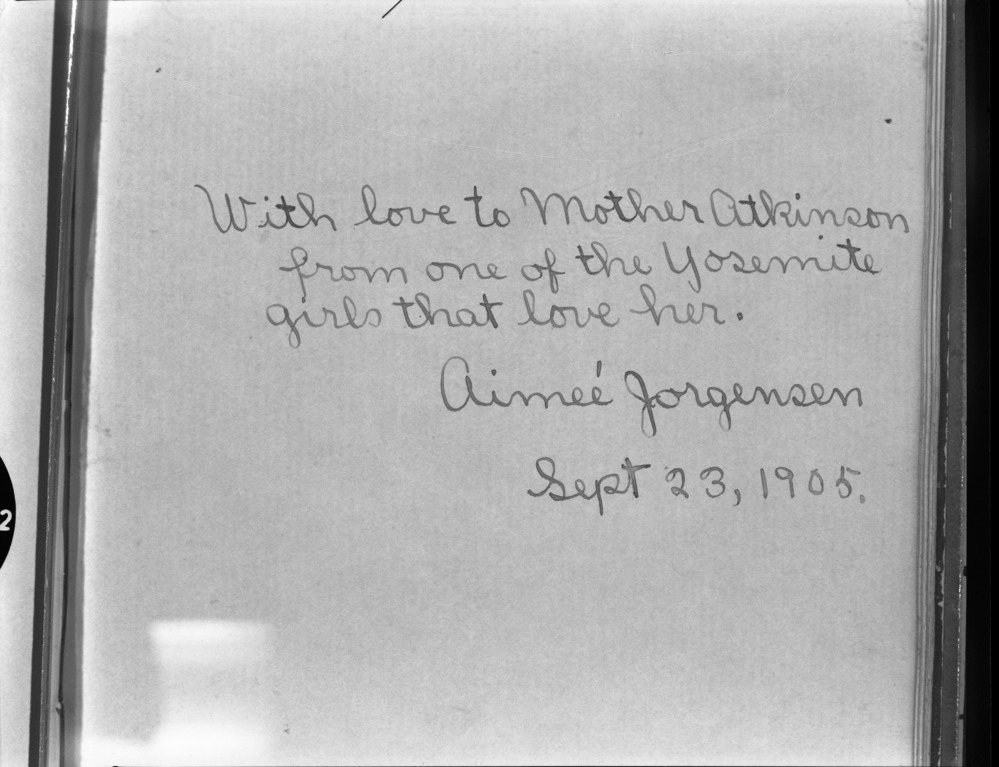 With love to Mother Atkinson
from one of the Yosemite
girls that love her.
Aimeé Jorgensen
Sept 23, 1905.
2